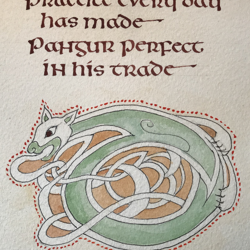 Practice every day
has made
Pangur Perfect
in his trade